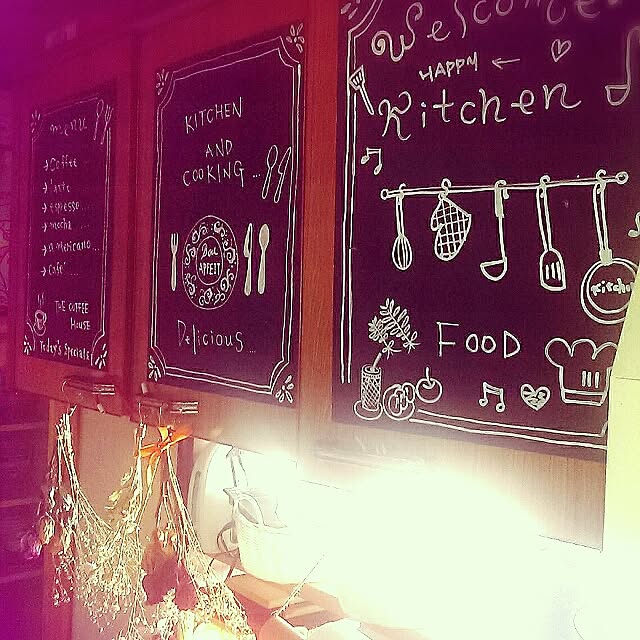 menu
→ Coffee
→ Latte
→ espresso ...
→ mocha ...
→ americano ...
→ Cafe' ...
THE COFFEE
HOUSE
Today's Specials
KITCHEN
AND
COOKING ...
Bon
APPEIT
Delicious ...
Welcome
HAPPY ←
Kitchen
Kitchen
FOOD